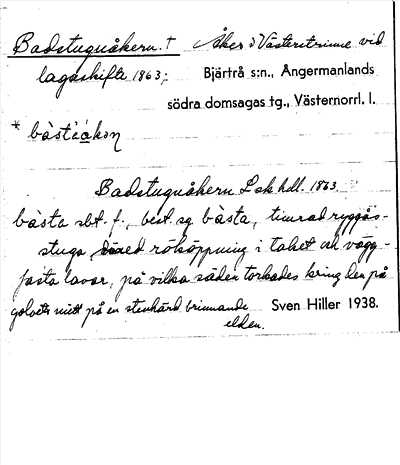 Badstuguåkern. † Åker i Västerstrinne vid
lagaskifte 1863;
Bjärtrå s:n., Ångermanlands
södra domsagas tg., Västernorrl. l.
* bàst`ákɘn
Badstuguåkern Lsk hdl. 1863.
bàsta sbt. f., best. sg bàsta, timrad ryggås-
stuga med rököppning i taket och vägg-
fasta lavar, på vilka säden torkades kring den på
golvets mitt på en stenhärd brinnande
elden.
Sven Hiller 1938.